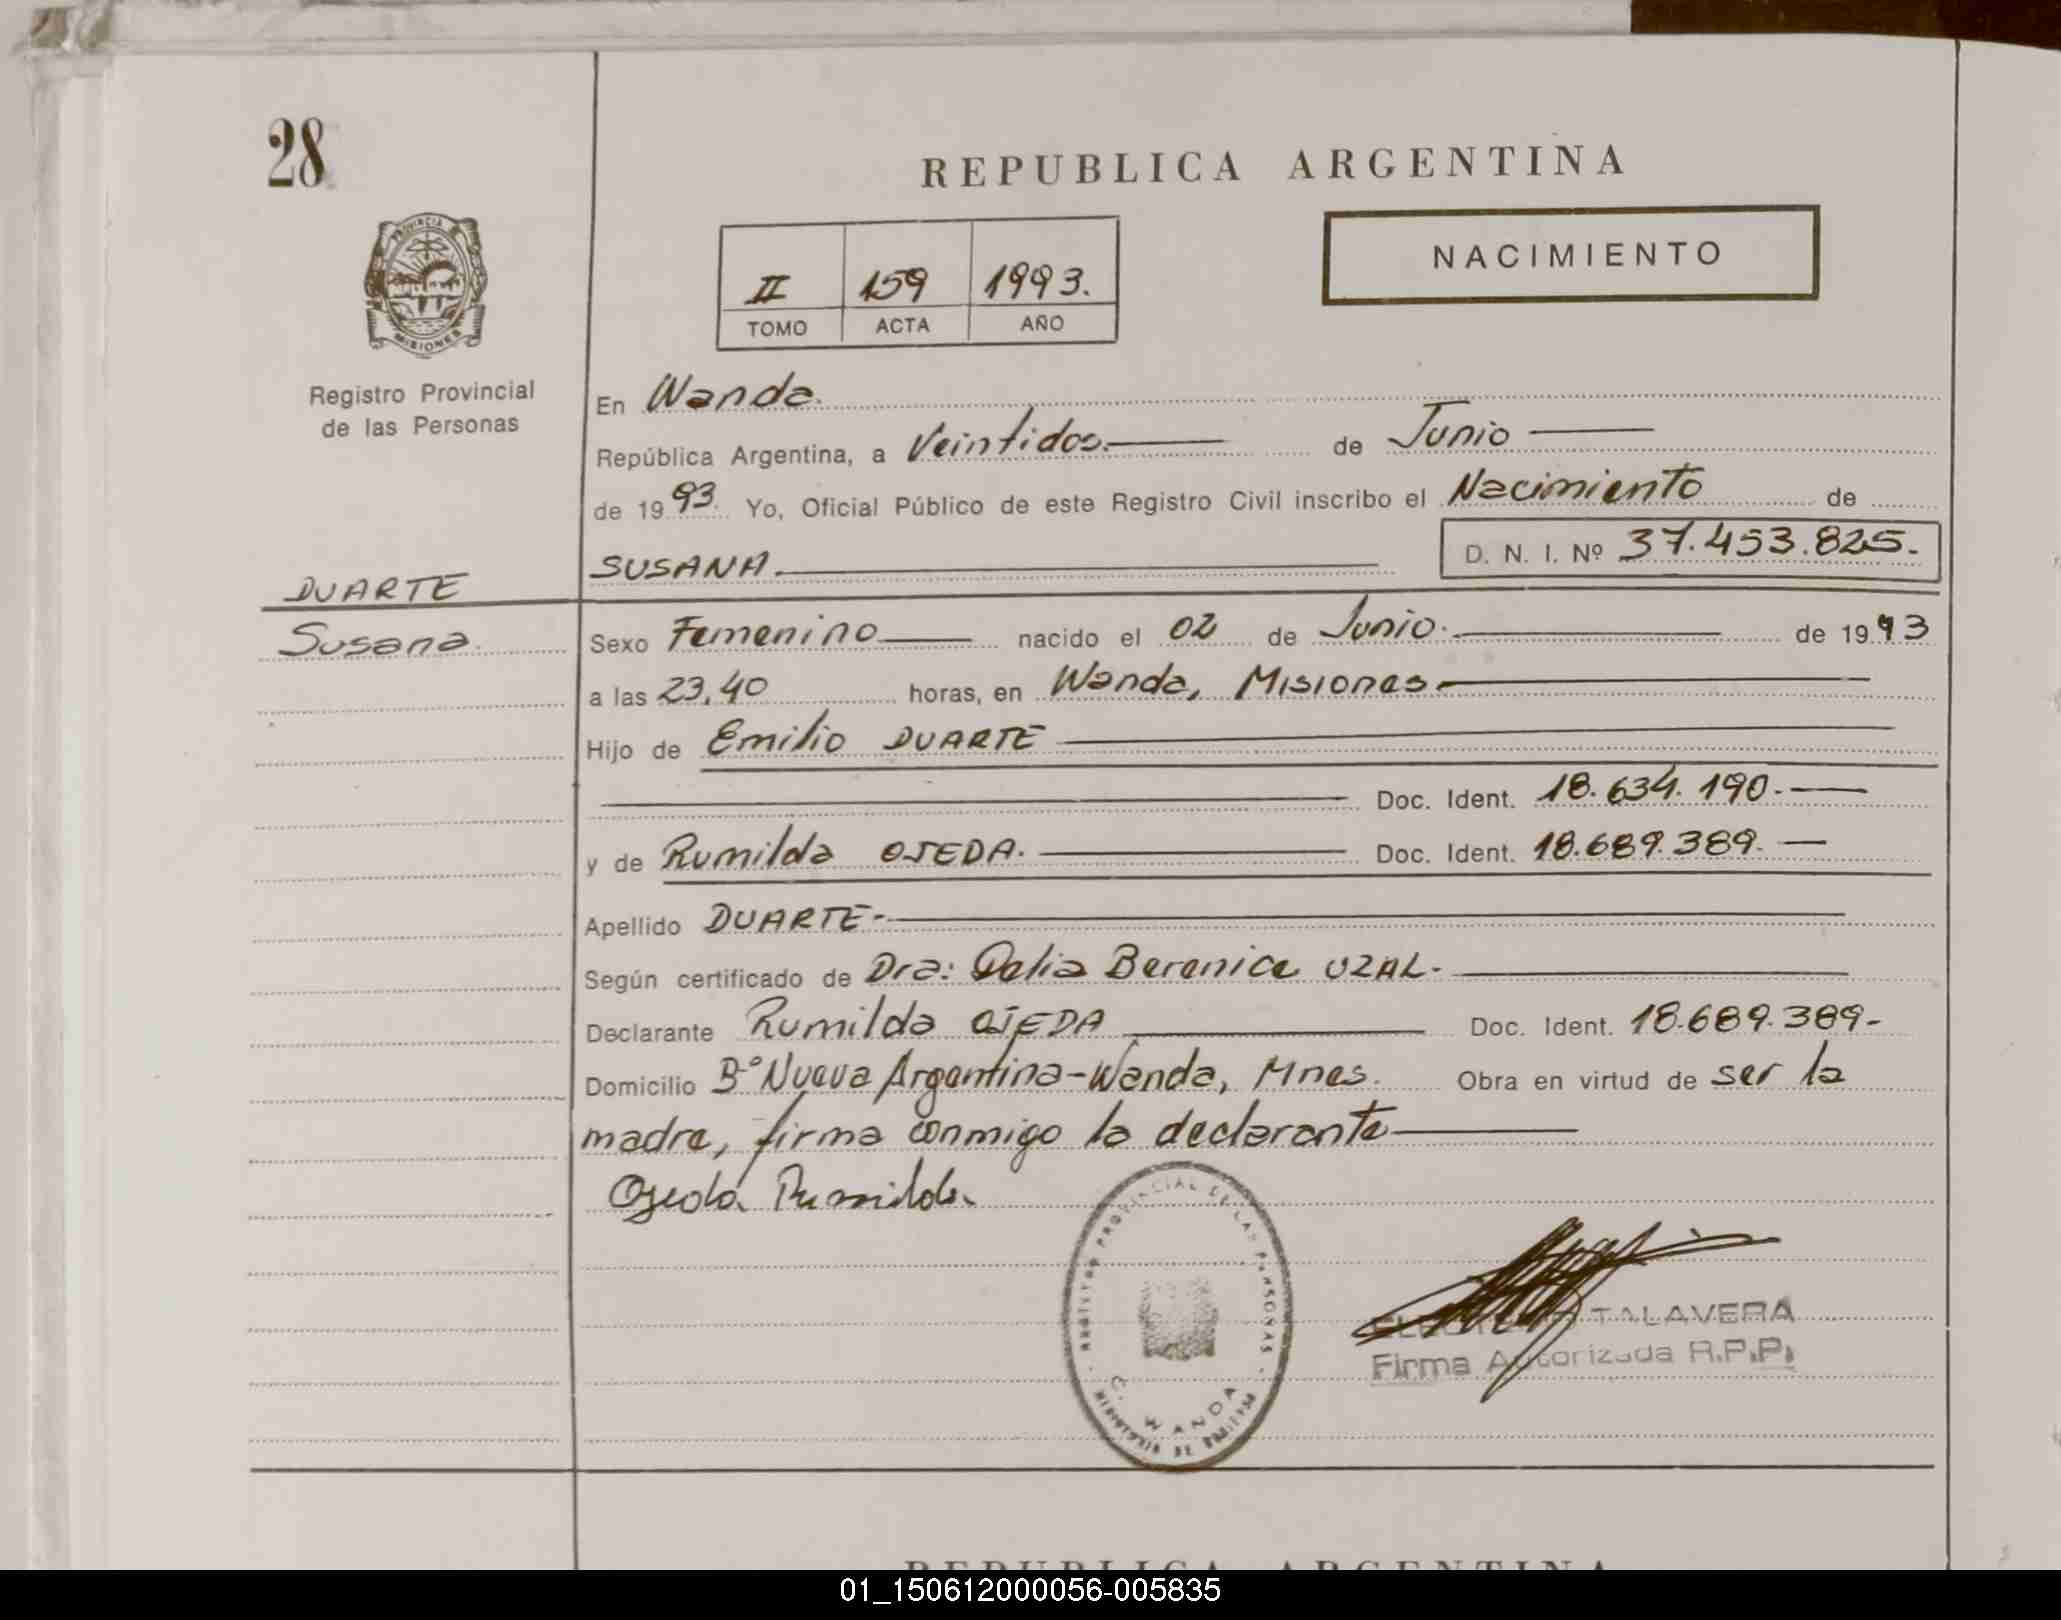 28
REPUBLICA ARGENTINA
NACIMIENTO
II 159 1993.
TOMO ACTA AÑO
PROVINCIA
MISIONES
Registro Provincial
de las Personas
En Wanda.
República Argentina, a Veintidos. de Junio
de 1993. Yo, Oficial Público de este Registro Civil inscribo el Nacimiento de
SUSANA. D. N. I. Nº 37.453.825.
DUARTE
Susana.
Sexo Femenino nacido el 02 de Junio. de 1993
a las 23,40 horas, en Wanda, Misiones
Hijo de Emilio DUARTE
Doc. Ident. 18.634.190.
y de Rumilda OJEDA. Doc. Ident. 18.689.389.
Apellido DUARTE-
Según certificado de Dra: Delia Berenice UZAL.
Declarante Rumilda OJEDA Doc. Ident. 18.689.389-
Domicilio Bº Nueva Argentina-Wanda, Mnes. Obra en virtud de ser la
madre, firma conmigo la declarante
Ojeda Rumilda
REGISTRO PROVINCIAL DE LAS PERSONAS
WANDA
TALAVERA
Firma Autorizada R.P.P.
REPUBLICA ARGENTINA
01_150612000056-005835